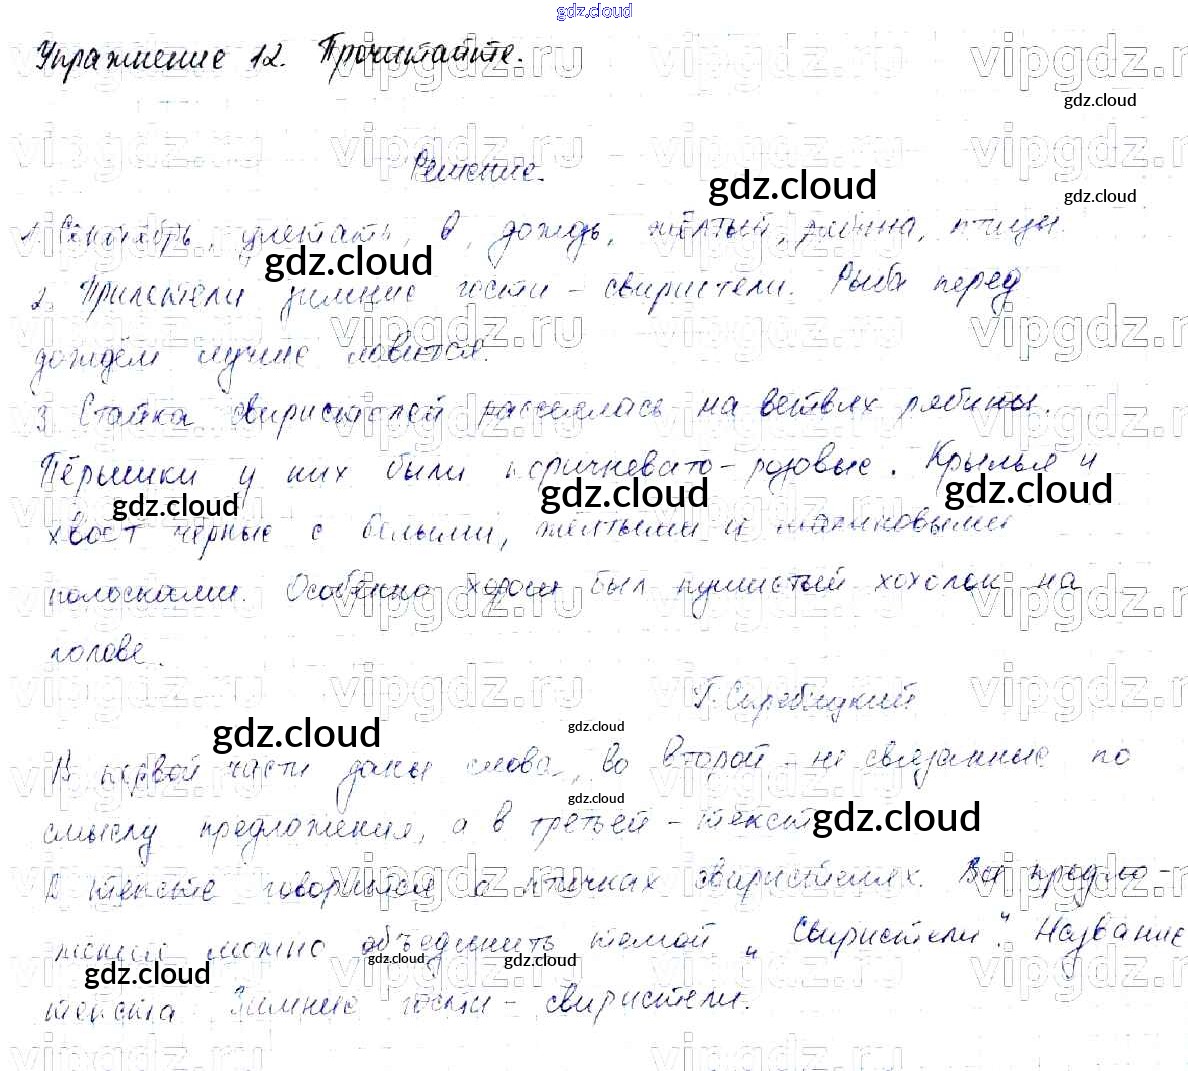 gdz.cloud
Упражнение 12. Прочитайте.
gdz.cloud
Решение.
gdz.cloud
gdz.cloud
1. Сентябрь, улетать, в, дождь, жёлтый, рябина, птицы.
gdz.cloud
2. Прилетели зимние гости - свиристели. Рыба перед
дождём лучше ловится.
3. Стайка свиристелей расселась на ветвях рябины.
Пёрышки у них были коричневато-розовые. Крылья и
gdz.cloud gdz.cloud gdz.cloud
хвост чёрные с белыми, жёлтыми и малиновыми
полосками. Особенно хорош был пушистый хохолок на
голове.
Г. Скребицкий
gdz.cloud gdz.cloud
В первой части даны слова, во второй - не связанные по
gdz.cloud
смыслу предложения, а в третьей - текст
gdz.cloud
В тексте говорится о птичках свиристелях. Все предло-
жения можно объединить темой „Свиристели". Название
gdz.cloud gdz.cloud gdz.cloud
текста Зимние гости - свиристели.